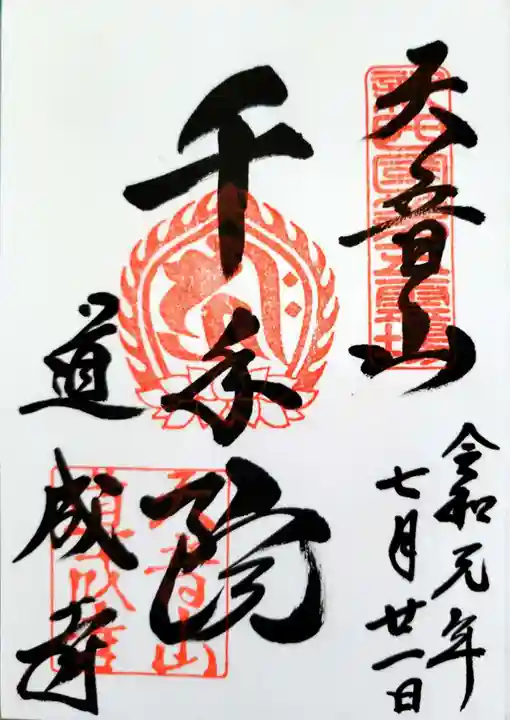 天音山
令和元年
七月廿一日
千手院
道成寺
天音山
道成寺